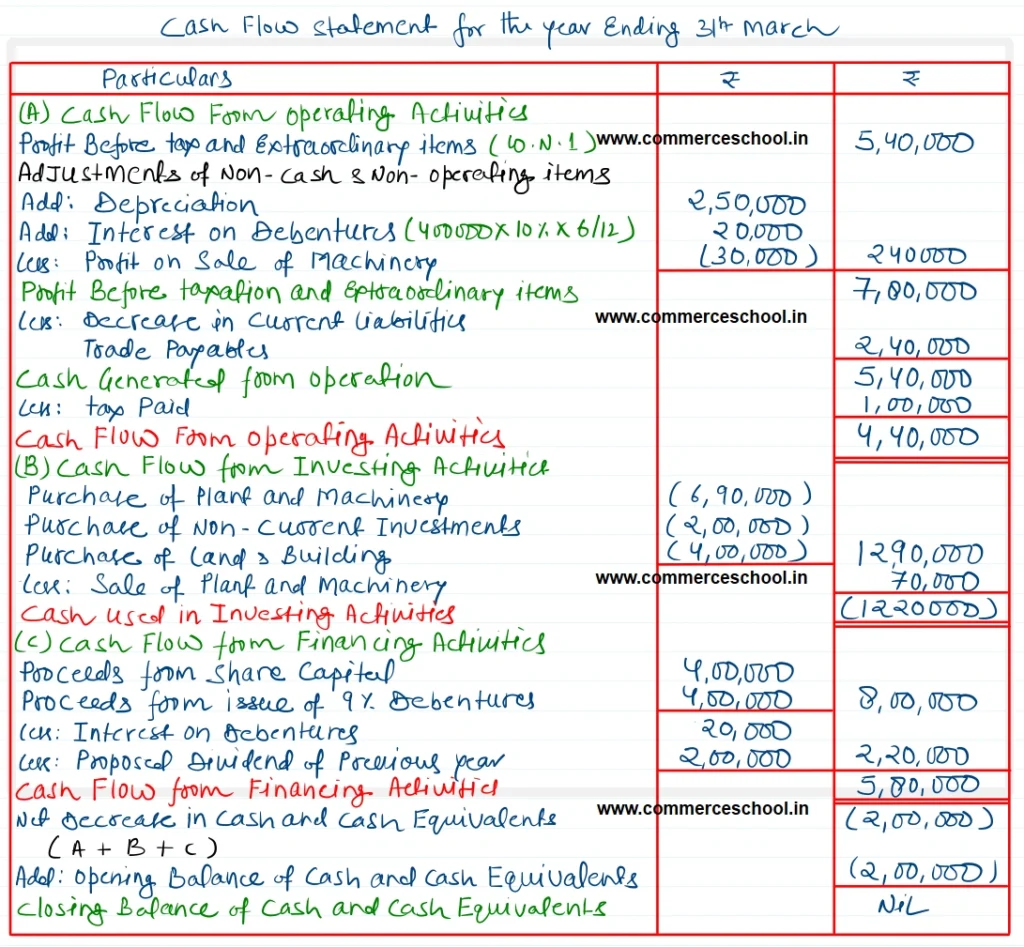 Cash Flow statement for the year Ending 31th March
Particulars ₹ ₹
(A) Cash Flow From operating Activities
Profit Before tax and Extraordinary items (W.N.1) www.commerceschool.in 5,40,000
Adjustments of Non-cash & Non-operating items
Add: Depreciation 2,50,000
Add: Interest on Debentures (400000 X 10% X 6/12) 20,000
Less: Profit on Sale of Machinery (30,000) 240000
Profit Before taxation and Extraordinary items 7,80,000
Less: Decrease in Current liabilities www.commerceschool.in
Trade Payables 2,40,000
Cash Generated from operation 5,40,000
Less: tax Paid 1,00,000
Cash Flow From operating Activities 4,40,000
(B) Cash Flow from Investing Activities
Purchase of Plant and Machinery (6,90,000)
Purchase of Non-Current Investments (2,00,000)
Purchase of Land & Building (4,00,000) 1290,000
Less: Sale of Plant and Machinery www.commerceschool.in 70,000
Cash used in Investing Activities (1220000)
(C) Cash Flow from Financing Activities
Proceeds from Share Capital 4,00,000
Proceeds from issue of 9% Debentures 4,00,000 8,00,000
Less: Interest on Debentures 20,000
Less: Proposed Dividend of Previous year 2,00,000 2,20,000
Cash Flow from Financing Activities 5,80,000
Net Decrease in Cash and Cash Equivalents www.commerceschool.in (2,00,000)
(A + B + C)
Add: Opening Balance of Cash and Cash Equivalents (2,00,000)
Closing Balance of Cash and Cash Equivalents NiL